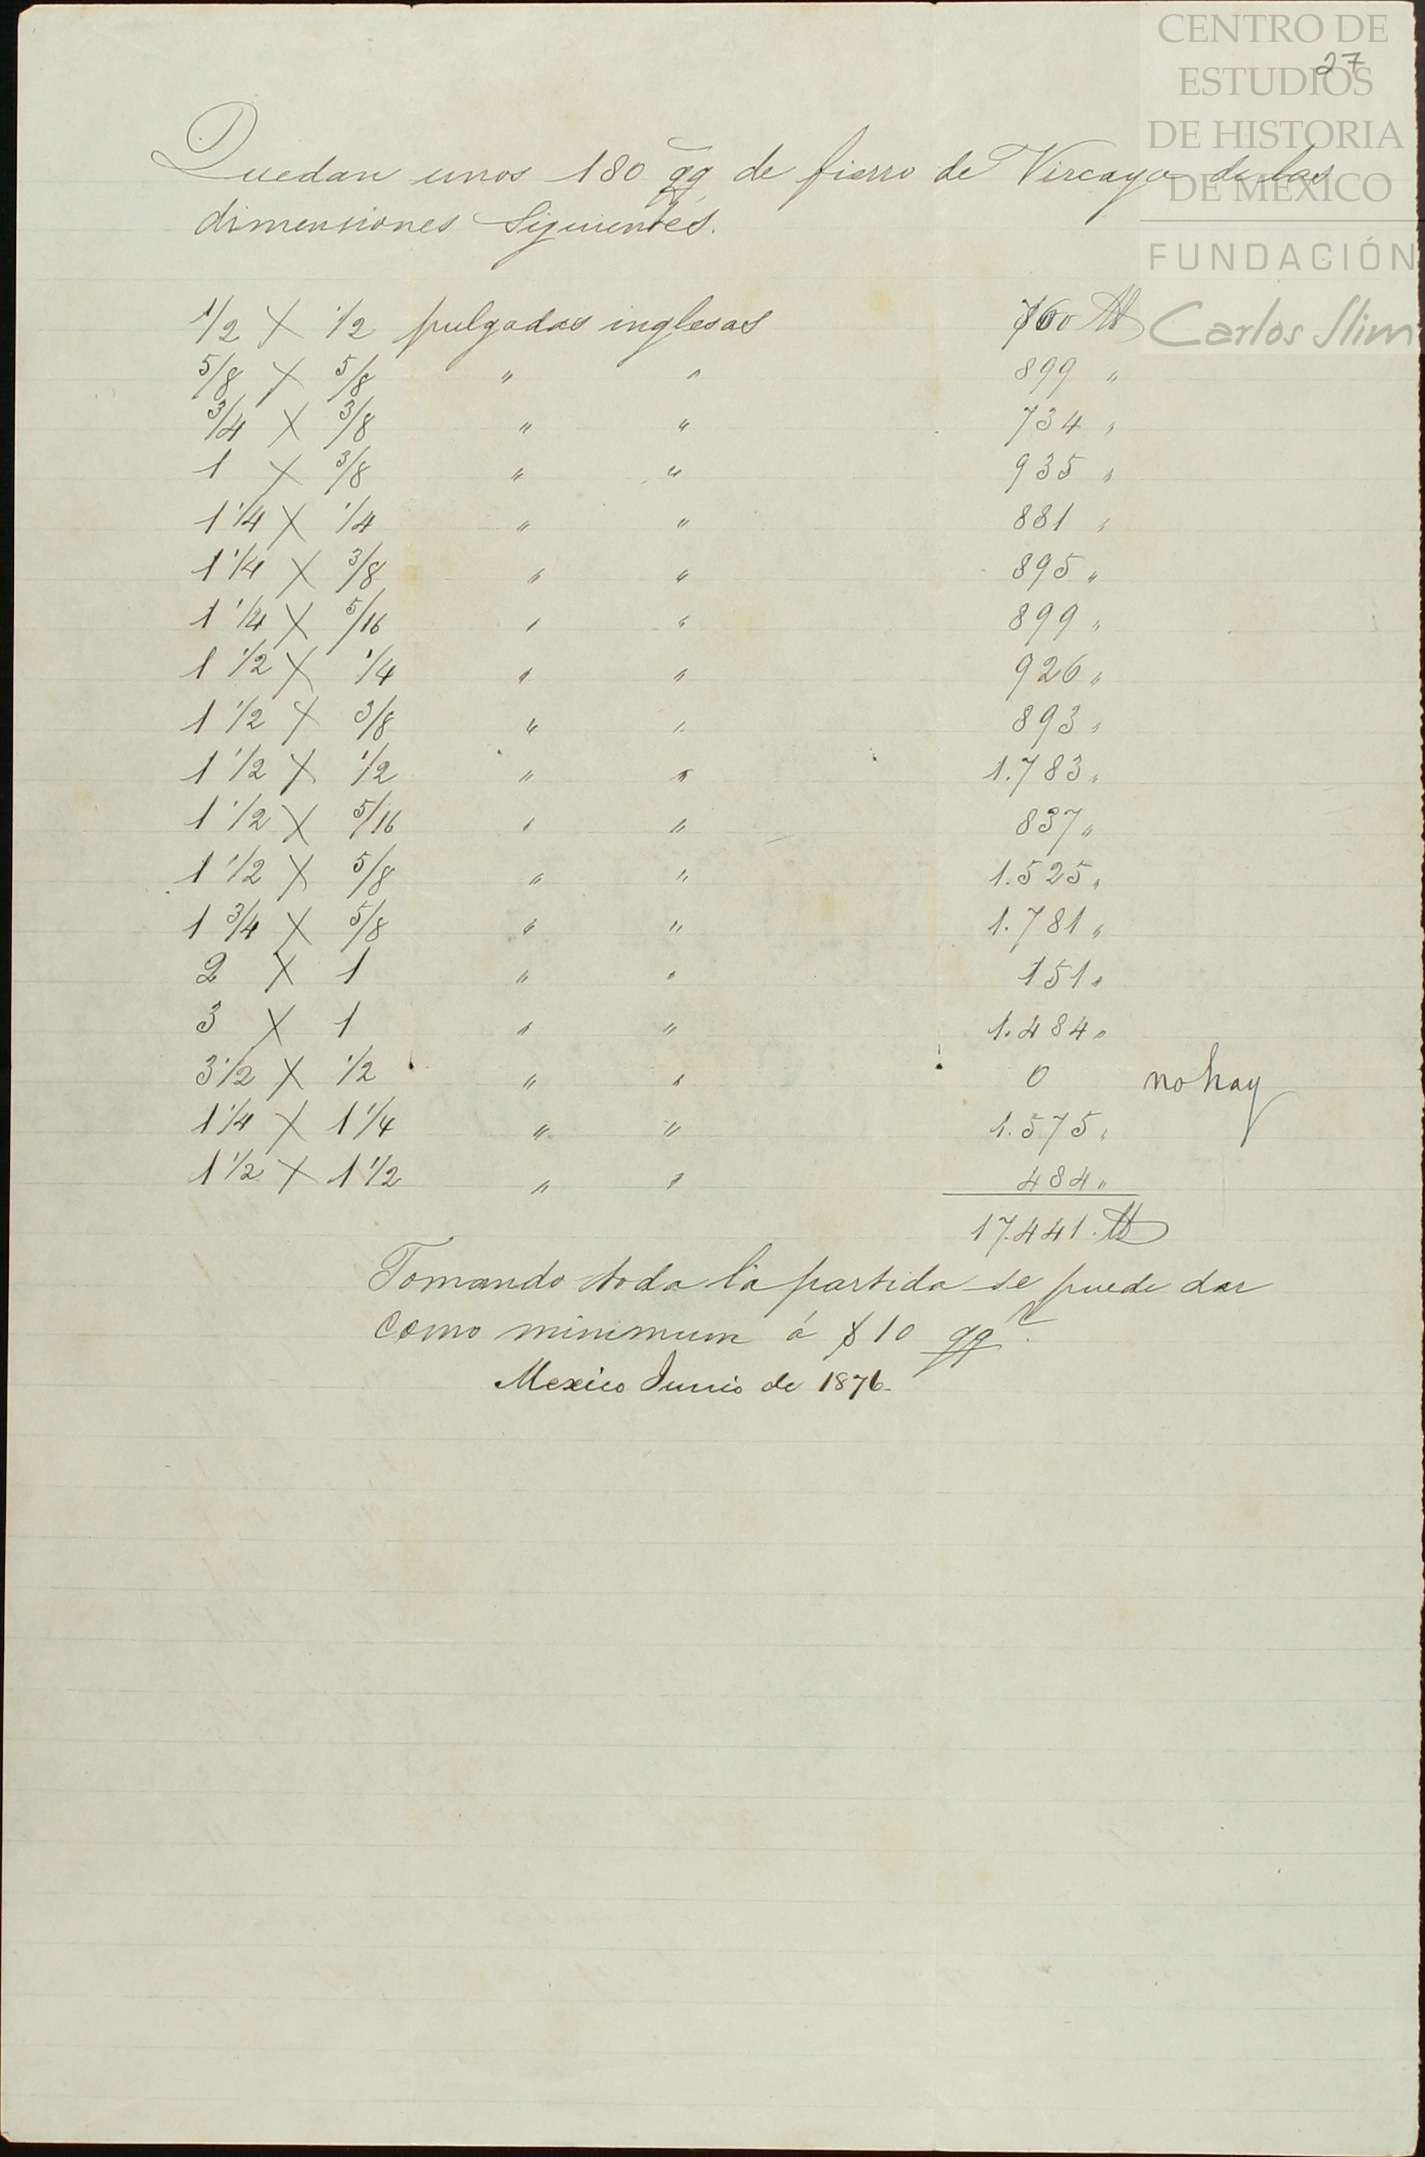 CENTRO DE
ESTUDIOS
DE HISTORIA
DE MÉXICO
FUNDACIÓN
Carlos Slim
27
Quedan unos 180 qq de fierro de Vircaya de las
dimensiones Siguientes.
1/2 X 1/2 pulgadas inglesas 760 lb
5/8 X 5/8 " " 899 "
3/4 X 3/8 " " 734 "
1 X 3/8 " " 935 "
1 1/4 X 1/4 " " 881 "
1 1/4 X 3/8 " " 895 "
1 1/4 X 5/16 " " 899 "
1 1/2 X 1/4 " " 926 "
1 1/2 X 3/8 " " 893 "
1 1/2 X 1/2 " " 1.783 "
1 1/2 X 5/16 " " 837 "
1 1/2 X 5/8 " " 1.525 "
1 3/4 X 5/8 " " 1.781 "
2 X 1 " " 151 "
3 X 1 " " 1.484 "
3 1/2 X 1/2 " " 0 no hay
1 1/4 X 1 1/4 " " 1.575 "
1 1/2 X 1 1/2 " " 484 "
17.441. lb
Tomando toda la partida se puede dar
como minimum á $10 qq.
Mexico Junio de 1876.